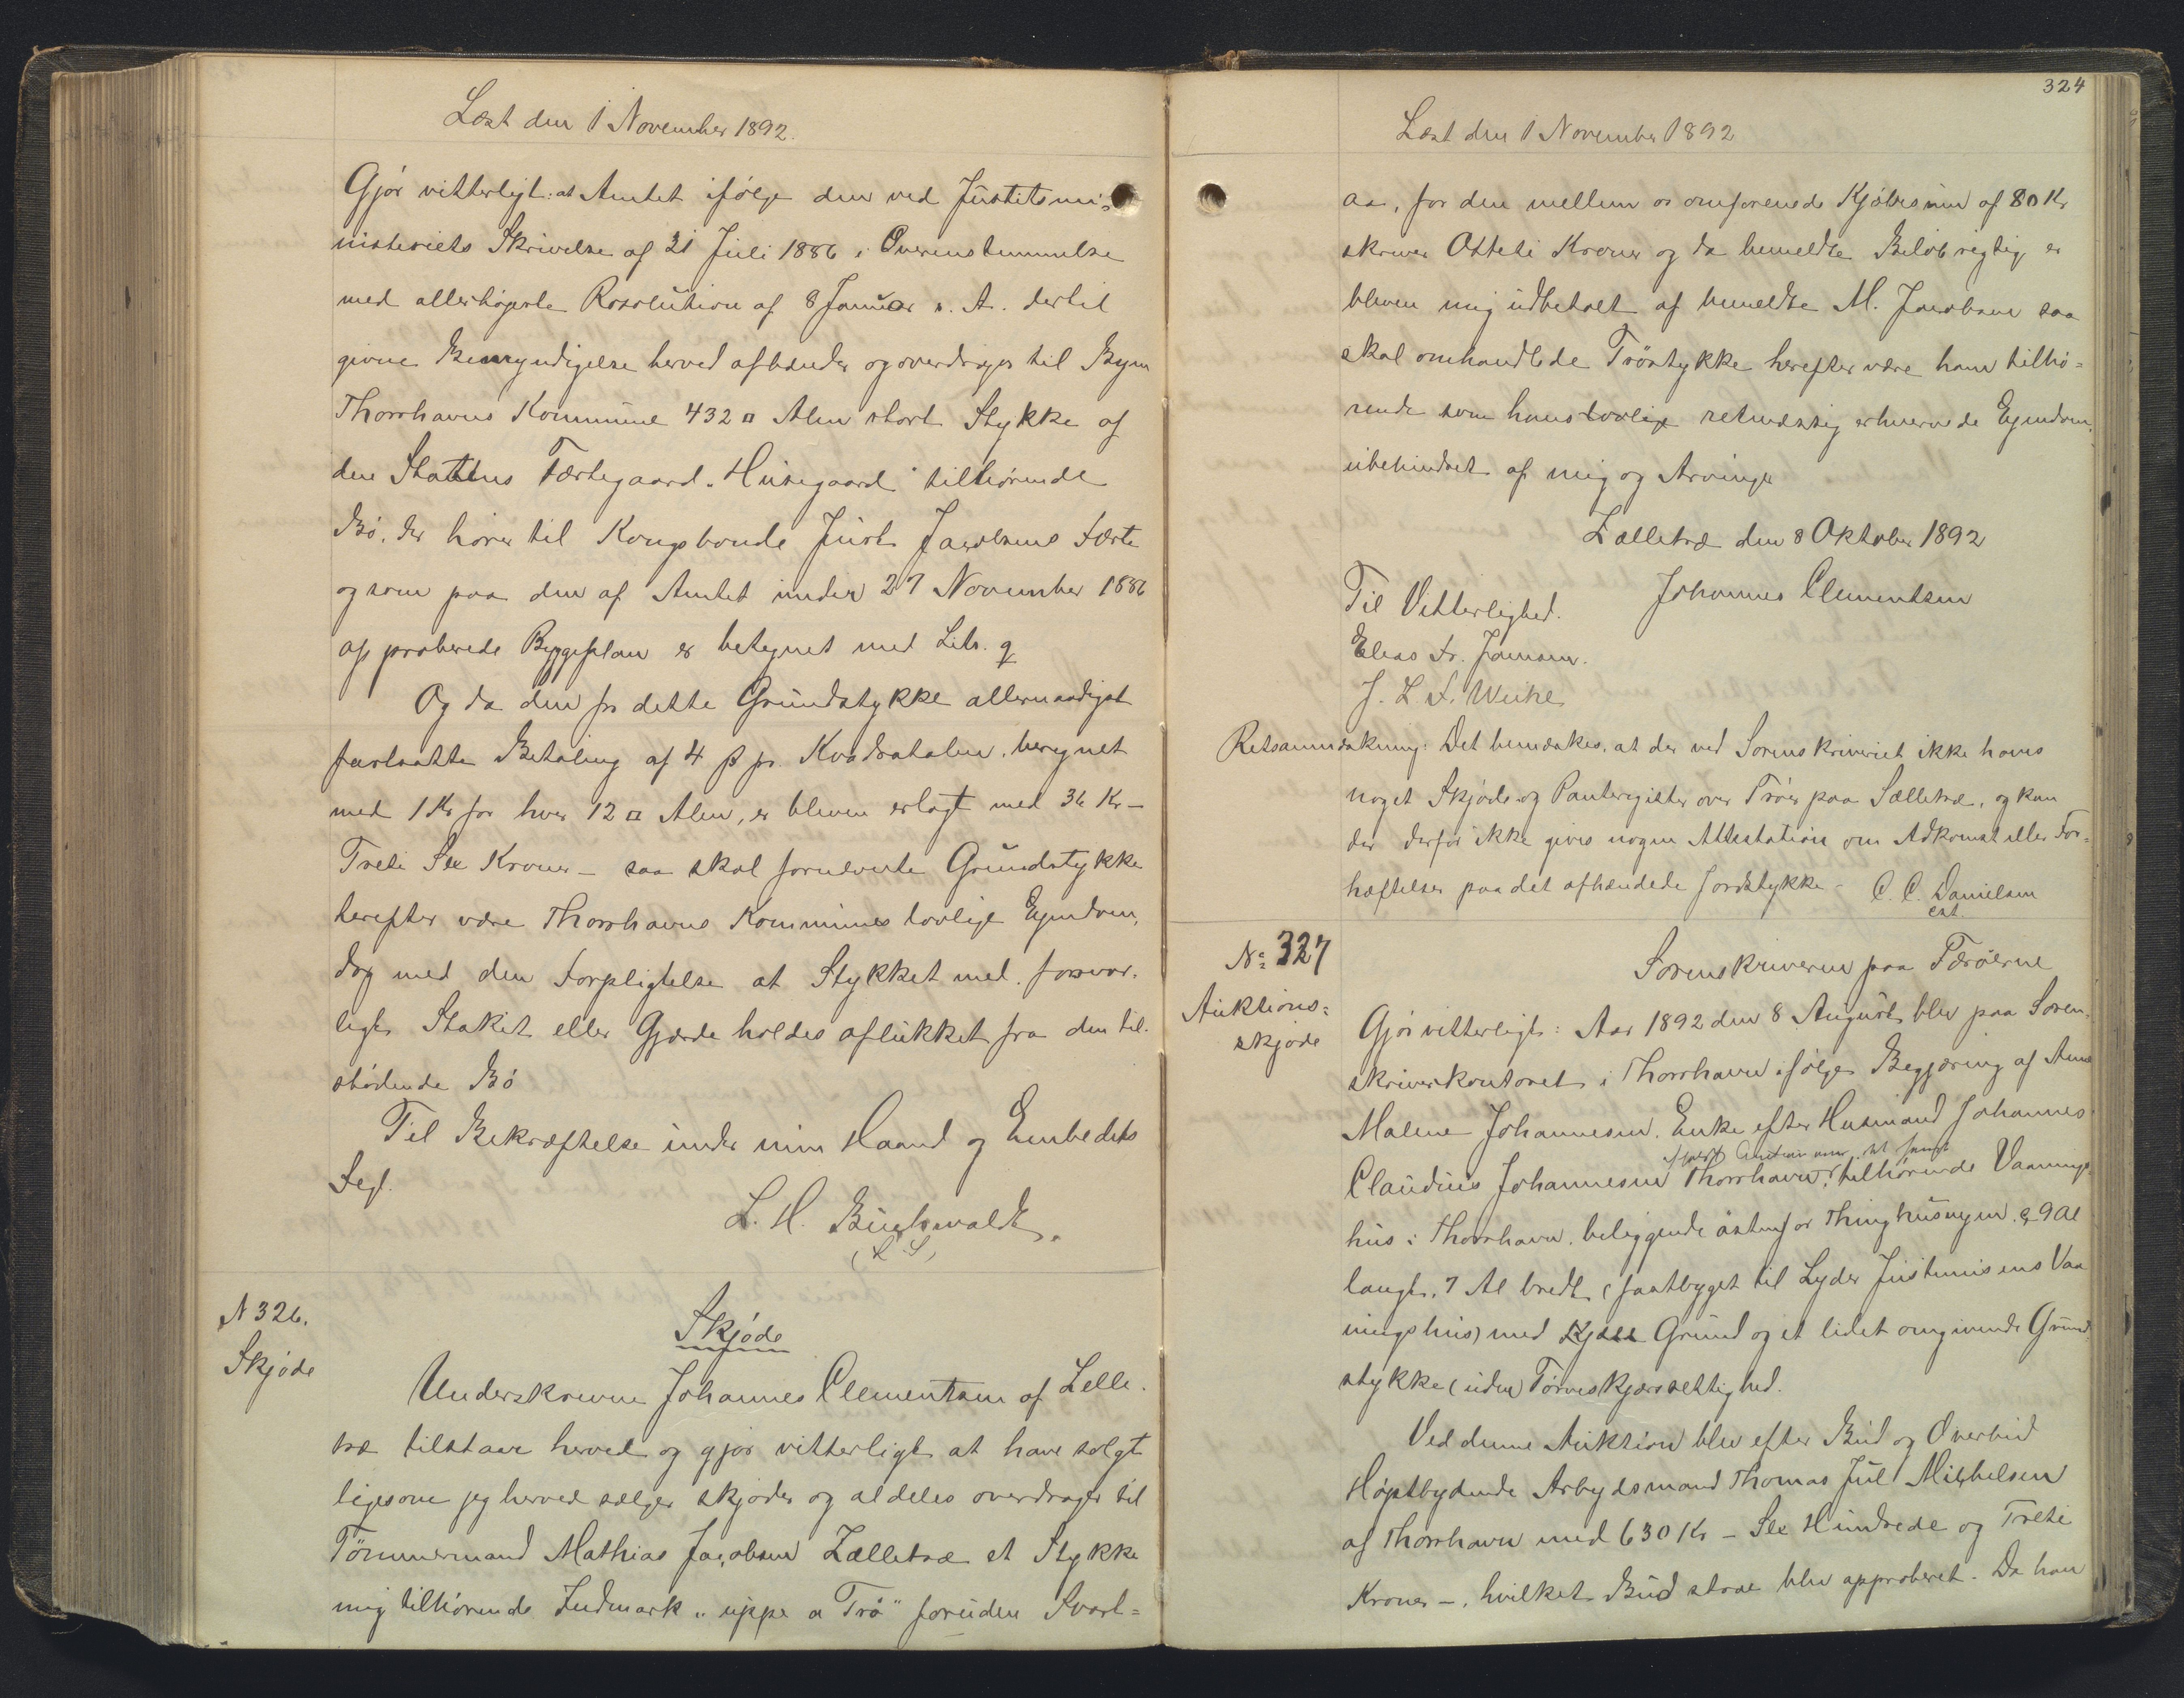 Læst den 1 November 1892.
Gjør vitterligt: at Amtet ifølge den ved Justitsmi-
nisteriets Skrivelse af 21 Juli 1886 i Overensstemmelse
med allerhøjeste Resolution af 8 Januar s. A. dertil
givne Bemyndigelse herved afhænder og overdrager til Byen
Thorshavns Kommune 432 □ Alen stort Stykke af
den Statens Fæstegaard "Husegaard" tilhørende
Bø, der hører til Kongsbonde Just Jacobsens Fæste
og som paa den af Amtet under 27 November 1886
approberede Byggeplan er betegnet med Litr. q
Og da den for dette Grundstykke allernaadigst
fastsatte Betaling af 4 β pr. Kvadratalen, beregnet
med 1 Kr for hver 12 □ Alen, er bleven erlagt med 36 Kr -
Treti Sex Kroner - saa skal fornævnte Grundstykke
herefter være Thorshavns Kommunes lovlige Ejendom,
dog med den Forpligtelse at Stykket med forsvar-
ligt Stakit eller Gjærde holdes aflukket fra den til-
stødende Bø
Til Bekræftelse under min Haand og Embedets
Segl.
L. H. Buchwaldt.
(L S)
N 326.
Skjøde
Skjøde
Underskrevne Johannes Clementsen af Selle-
træ tilstaar herved og gjør vitterligt at have solgt
ligesom jeg herved sælger skjøder og aldeles overdrager til
Tømmermand Mathias Jacobsen Sælletræ et Stykke
mig tilhørende Indmark "uppe a Trø" foruden Svart-
324
Læst den 1 November 1892
aa, for den mellem os omforenede Kjøbesum af 80 Kr
skriver Otteti Kroner og da bemeldte Beløb rigtig er
bleven mig udbetalt af bemeldte M. Jacobsen saa
skal omhandlede Trøstykke herefter være ham tilhø-
rende som hans lovlige retmæssig erhvervede Ejendom,
ubehindret af mig og Arvinger
Sælletræ den 8 Oktober 1892
Johannes Clementsen
Til Vitterlighed.
Elias Fr. Jansen.
J. L. F. Weihe
Retsanmærkning: Det bemærkes, at der ved Sorenskriveriet ikke haves
noget Skjøde og Panteregister over Trøer paa Sælletræ, og kan
der derfor ikke gives nogen Attestation om Adkomst eller For-
hæftelser paa det afhændede Jordstykke - C. C. Danielsen
cst.
No 327
Auktions-
skjøde
Sorenskriveren paa Færøerne
Gjør vitterligt: Aar 1892 den 8 August blev paa Soren-
skriverkontoret i Thorshavn ifølge Begjæring af Anne
Malene Johannesen, Enke efter Husmand Johannes
afholdt Auction over det hende
Claudius Johannesen Thorshavn, tilhørende Vaanings-
hus i Thorshavn, beliggende østenfor Thinghusvejen, c 9 Al
langt, 7 Al bredt (fastbygget til Lyder Justinusens Vaa
ningshus) med Grund og et lidet omgivende Grund
stykke (uden Tørveskjærsrettighed.
Ved denne Auktion blev efter Bud og Overbud
Højstbydende Arbejdsmand Thomas Juul Mikkelsen
af Thorshavn med 630 Kr - Sex Hundrede og Treti
Kroner -, hvilket Bud strax blev approberet. Da han